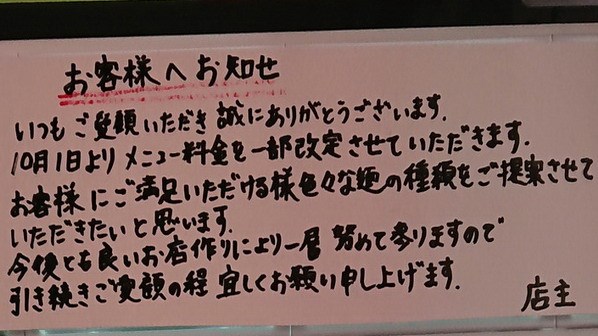 お客様へお知せ
いつもご愛顧いただき誠にありがとうございます.
10月1日よりメニュー料金を一部改定させていただきます.
お客様にご満足いただける様色々な麺の種類をご提案させて
いただきたいと思います.
今後とも良いお店作りにより一層努めて参りますので
引き続きご愛顧の程宜しくお願い申し上げます.
店主